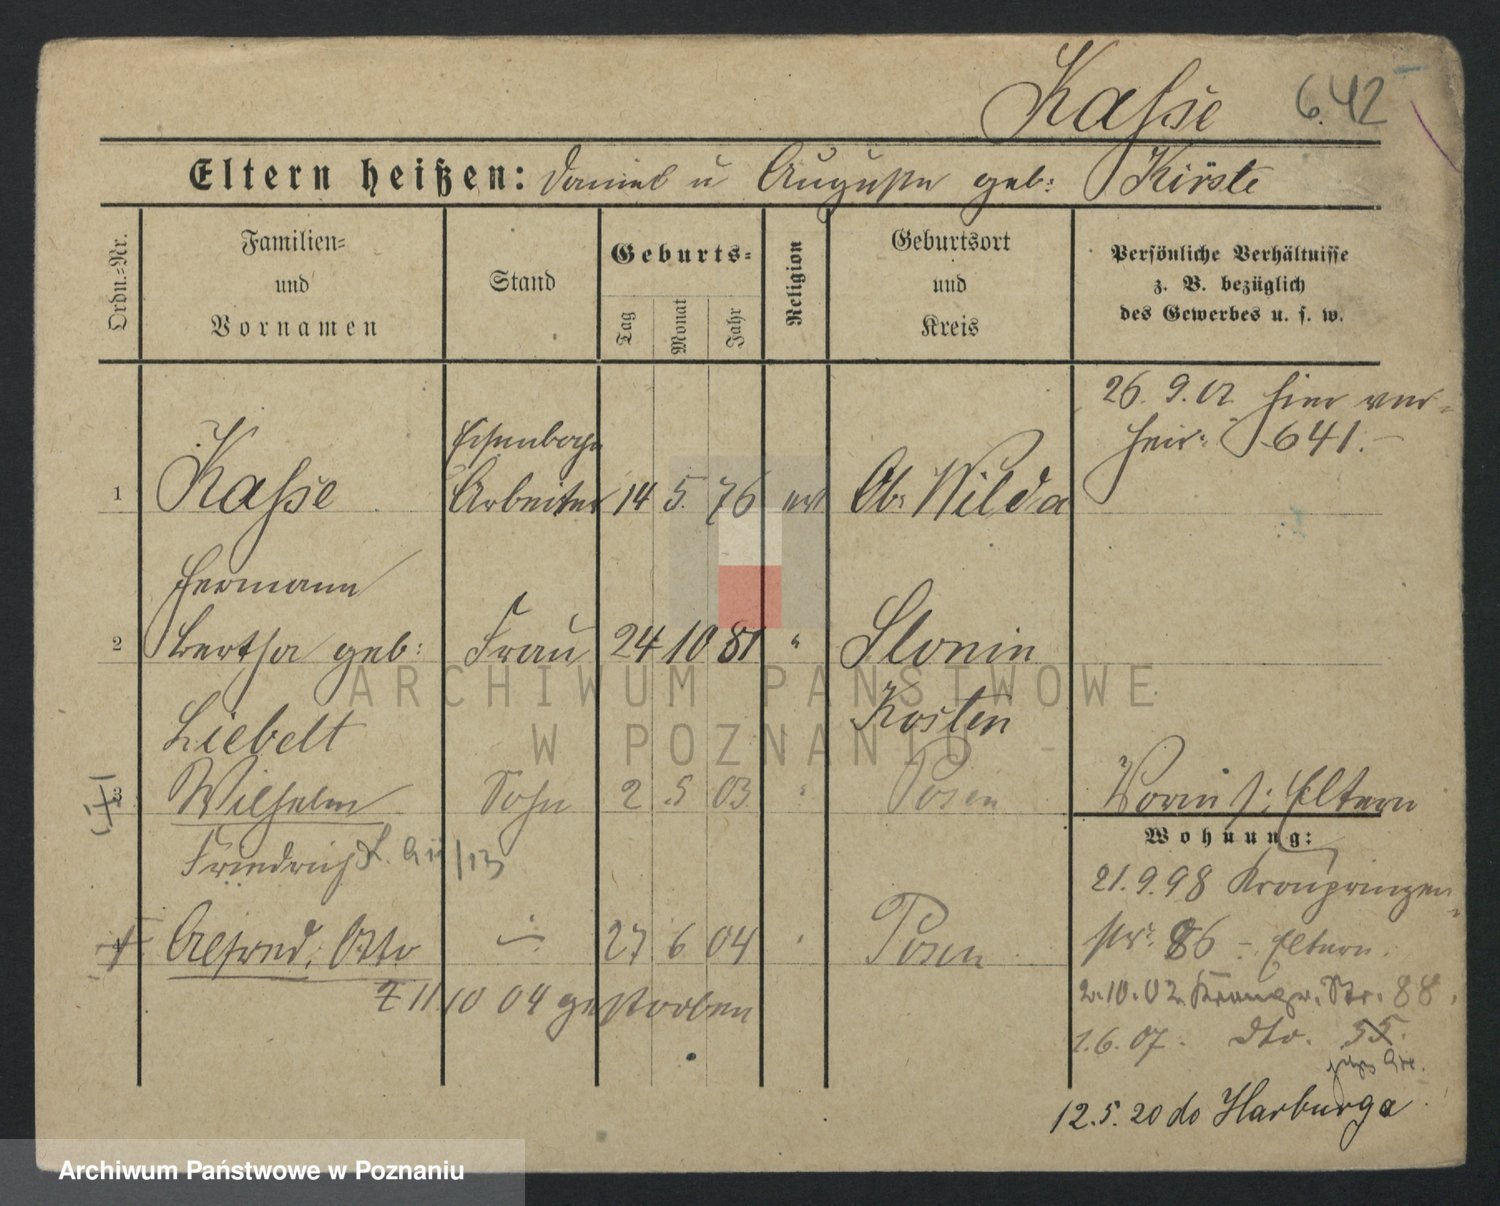 Kaſse 642
Eltern heißen: Daniel u Auguste geb: Kirste
Ordn.=Nr.
Familien=
und
Vornamen
Stand
Geburts=
Tag
Monat
Jahr
Religion
Geburtsort
und
Kreis
Persönliche Verhältnisse
z. B. bezüglich
des Gewerbes u. s. w.
26. 9. 02 hier ver-
heir: 641.-
1 Kaſse Eisenbahn Arbeiter 14 5. 76 ev Ob: Wilda
Hermann
2 Bertha geb: Frau 24 10 81 " Slonin
Liebelt Kosten
3 Wilhelm Sohn 2 5 03 " Posen
Friedrich
4 Alfred, Otto 27 6 04 " Posen
11/10 04 gestorben
Vorm s: Eltern
Wohnung:
21. 9. 98 Kronprinzen
str. 86 - Eltern.
2. 10. 02. Kronpr. Str. 88.
1. 6. 07. dto. 55.
12. 5. 20 do Harburg
ARCHIWUM PAŃSTWOWE
W POZNANIU
Archiwum Państwowe w Poznaniu